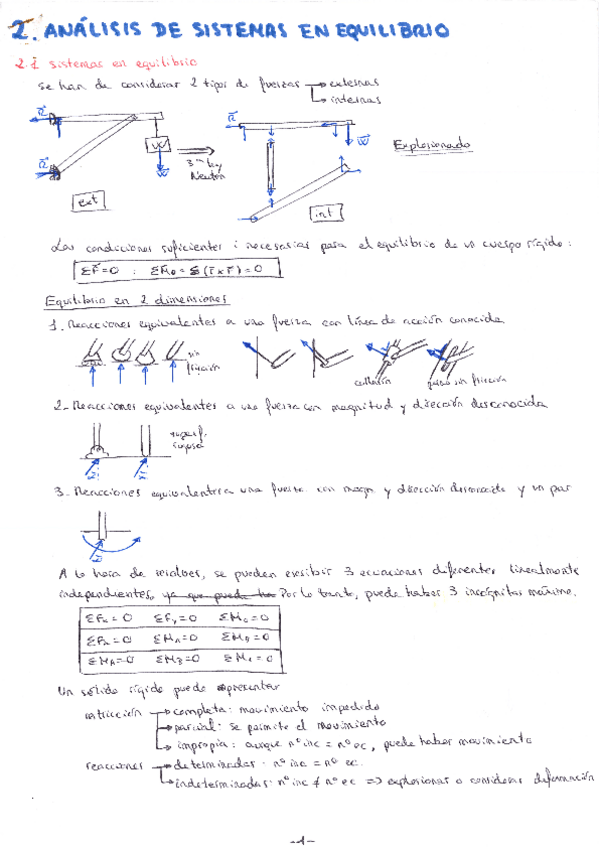 2. ANÁLISIS DE SISTEMAS EN EQUILIBRIO
2.1 sistemas en equilibrio
Se han de considerar 2 tipos de fuerzas → externas
→ internas
R
R
W
W
3ra ley
Newton
ext
R
W
int
Explosionado
Las condiciones suficientes i necesarias para el equilibrio de un cuerpo rígido:
ΣF=0 : ΣM₀ = Σ(r×F)=0
Equilibrio en 2 dimensiones
1. Reacciones equivalentes a una fuerza con línea de acción conocida
sin
fricción
collarín
pasador sin fricción
2- Reacciones equivalentes a una fuerza con magnitud y dirección desconocida
superf.
rugosa
3- Reacciones equivalentes a una fuerza con magn y dirección desconocida y un par
A la hora de resolver, se pueden escribir 3 ecuaciones diferentes linealmente
independientes, ya que puede ha Por lo tanto, puede haber 3 incógnitas máximo.
ΣFx=0 ΣFy=0 ΣM₀=0
ΣFx=0 ΣMA=0 ΣMB=0
ΣMA=0 ΣMB=0 ΣMc=0
Un sólido rígido puede representar
restricción → completa: movimiento impedido
→ parcial: se permite el movimiento
→ impropia: aunque nº inc = nº ec, puede haber movimiento
reacciones → determinadas: nº inc = nº ec.
→ indeterminadas: nº inc ≠ nº ec ⇒ explosionar o considerar deformación
-1-